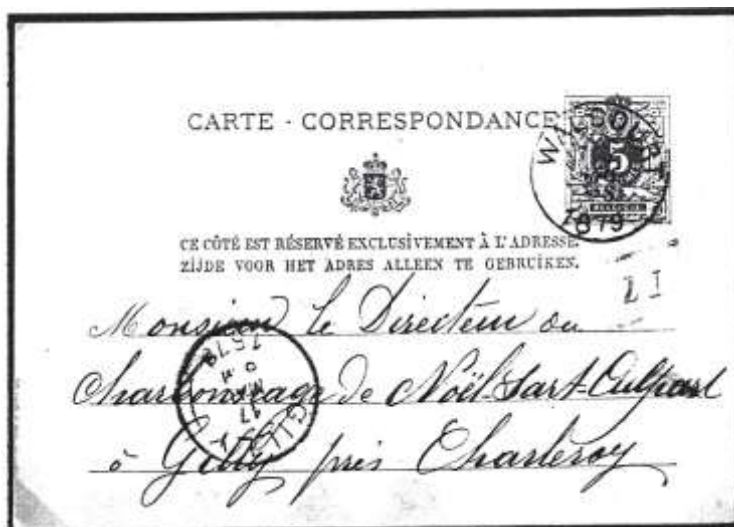 CARTE - CORRESPONDANCE
5
1879
CE CÔTÉ EST RÉSERVÉ EXCLUSIVEMENT À L'ADRESSE.
ZIJDE VOOR HET ADRES ALLEEN TE GEBRUIKEN.
Monsieur le Directeur du
Charbonnage de Noël-Sart-Culpart
à Gilly près Charleroy
GILLY
17